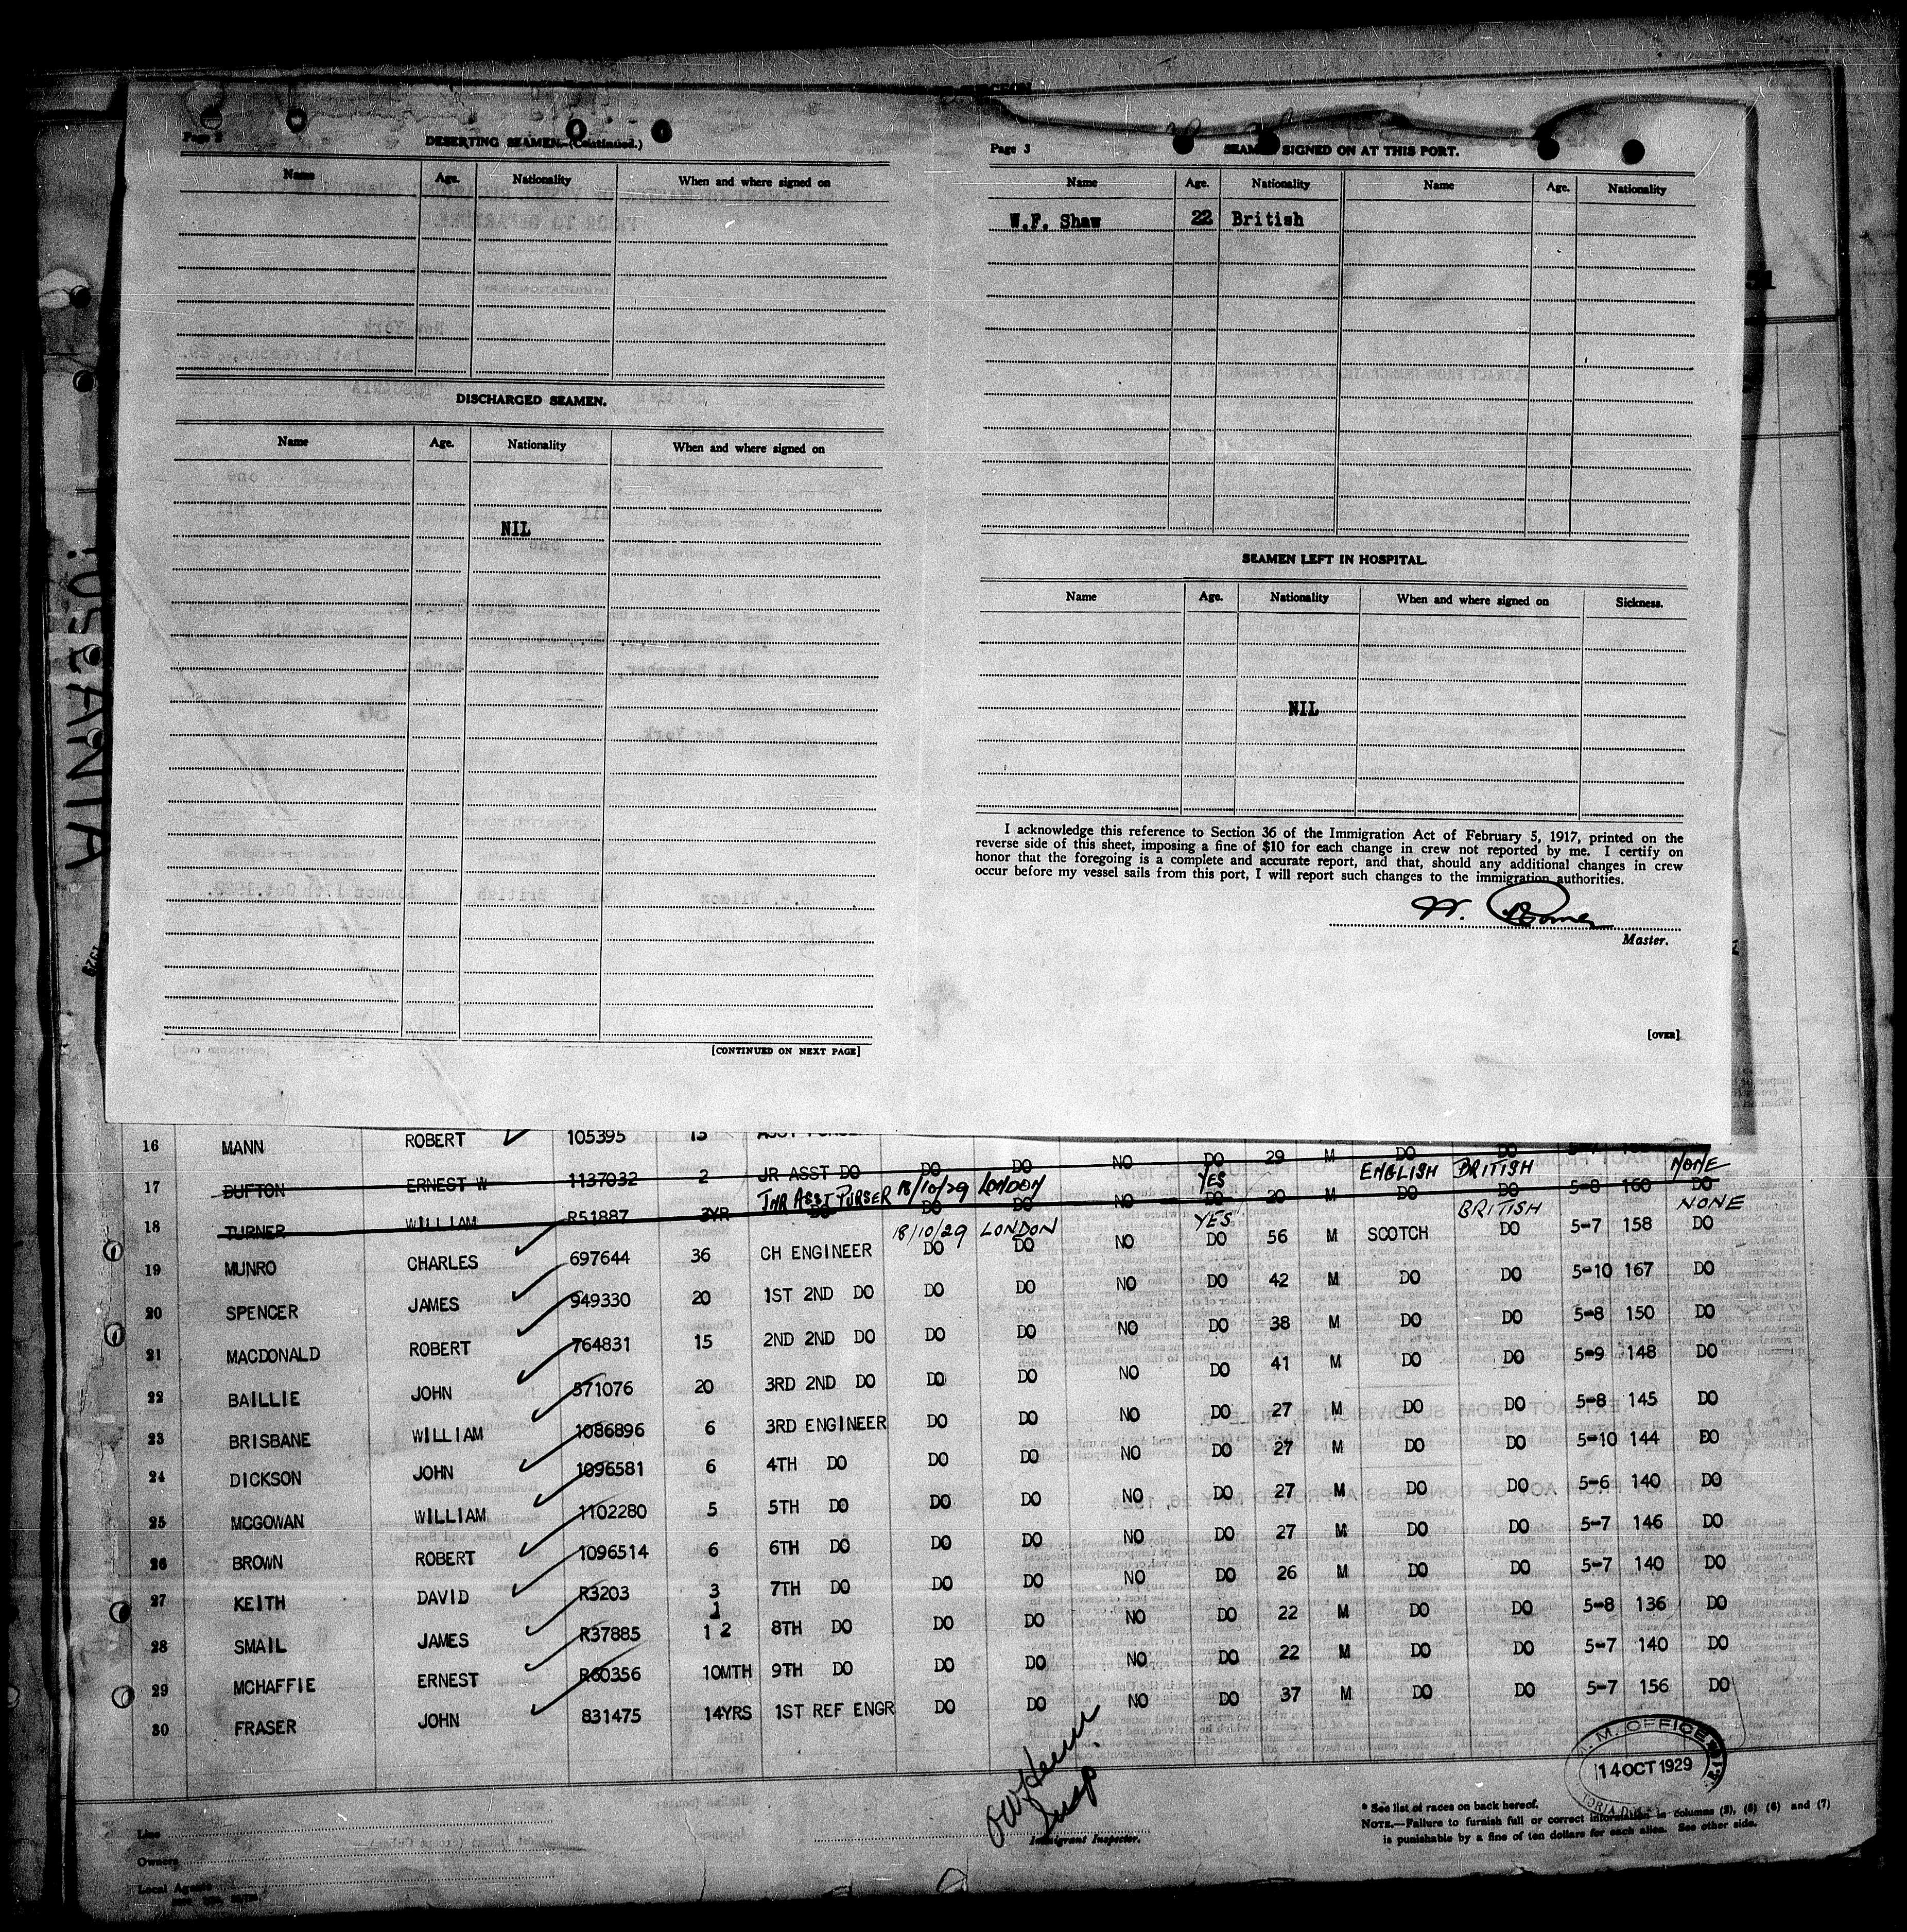 Page 2
DESERTING SEAMEN.—(Continued.)
Name Age. Nationality When and where signed on
DISCHARGED SEAMEN.
Name Age. Nationality When and where signed on
NIL
[CONTINUED ON NEXT PAGE]
Page 3
SEAMEN SIGNED ON AT THIS PORT.
Name Age. Nationality Name Age. Nationality
W.F. Shaw 22 British
SEAMEN LEFT IN HOSPITAL.
Name Age. Nationality When and where signed on Sickness.
NIL
I acknowledge this reference to Section 36 of the Immigration Act of February 5, 1917, printed on the
reverse side of this sheet, imposing a fine of $10 for each change in crew not reported by me. I certify on
honor that the foregoing is a complete and accurate report, and that, should any additional changes in crew
occur before my vessel sails from this port, I will report such changes to the immigration authorities.
Master.
[OVER]
16 MANN ROBERT 105395 13
17 DUFTON ERNEST W 1137032 2 JR ASST DO DO DO NO DO 29 M ENGLISH BRITISH NONE
JNR ASST PURSER 18/10/29 LONDON YES
18 TURNER WILLIAM R51887 3YR DO DO DO NO DO 20 M DO DO 5-8 160 DO
18/10/29 LONDON YES BRITISH NONE
19 MUNRO CHARLES 697644 36 CH ENGINEER DO DO NO DO 56 M SCOTCH DO 5-7 158 DO
20 SPENCER JAMES 949330 20 1ST 2ND DO DO DO NO DO 42 M DO DO 5-10 167 DO
21 MACDONALD ROBERT 764831 15 2ND 2ND DO DO DO NO DO 38 M DO DO 5-8 150 DO
22 BAILLIE JOHN 571076 20 3RD 2ND DO DO DO NO DO 41 M DO DO 5-9 148 DO
23 BRISBANE WILLIAM 1086896 6 3RD ENGINEER DO DO NO DO 27 M DO DO 5-8 145 DO
24 DICKSON JOHN 1096581 6 4TH DO DO DO NO DO 27 M DO DO 5-10 144 DO
25 MCGOWAN WILLIAM 1102280 5 5TH DO DO DO NO DO 27 M DO DO 5-6 140 DO
26 BROWN ROBERT 1096514 6 6TH DO DO DO NO DO 27 M DO DO 5-7 146 DO
27 KEITH DAVID R3203 3 7TH DO DO DO NO DO 26 M DO DO 5-7 140 DO
28 SMAIL JAMES R37885 1 1 2 8TH DO DO DO NO DO 22 M DO DO 5-8 136 DO
29 MCHAFFIE ERNEST R60356 10MTH 9TH DO DO DO NO DO 22 M DO DO 5-7 140 DO
30 FRASER JOHN 831475 14YRS 1ST REF ENGR DO DO NO DO 37 M DO DO 5-7 156 DO
M. OFFICE
14 OCT 1929
Insp.
Immigrant Inspector.
Line
Owners
Local Agents
* See list of races on back hereof.
NOTE.—Failure to furnish full or correct information in columns (2), (5) (6) and (7)
is punishable by a fine of ten dollars for each alien. See other side.
TUSCANIA